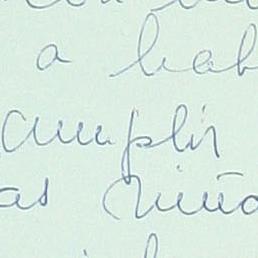 a hab
cumplir
as niña